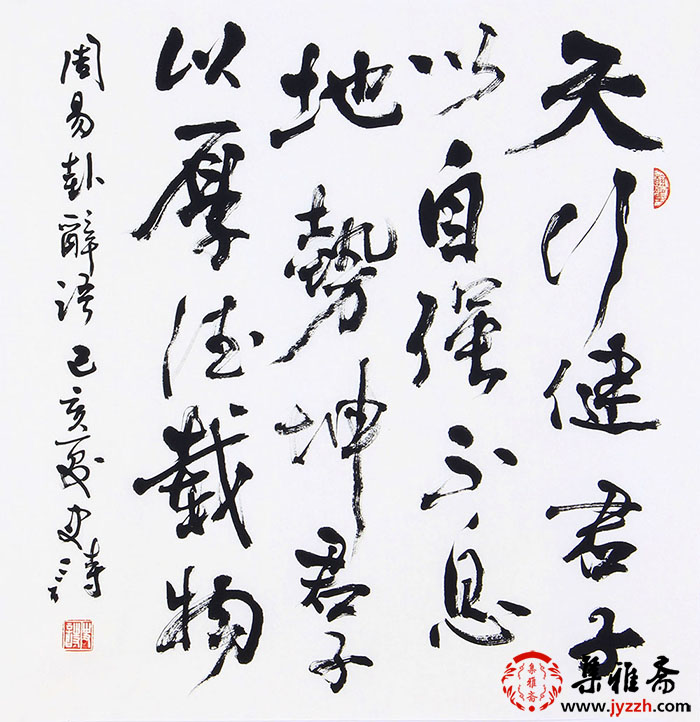 天行健君子
以自强不息
地势坤君子
以厚德载物
周易卦辞语己亥夏史诗
集雅斋
www.jyzzh.com